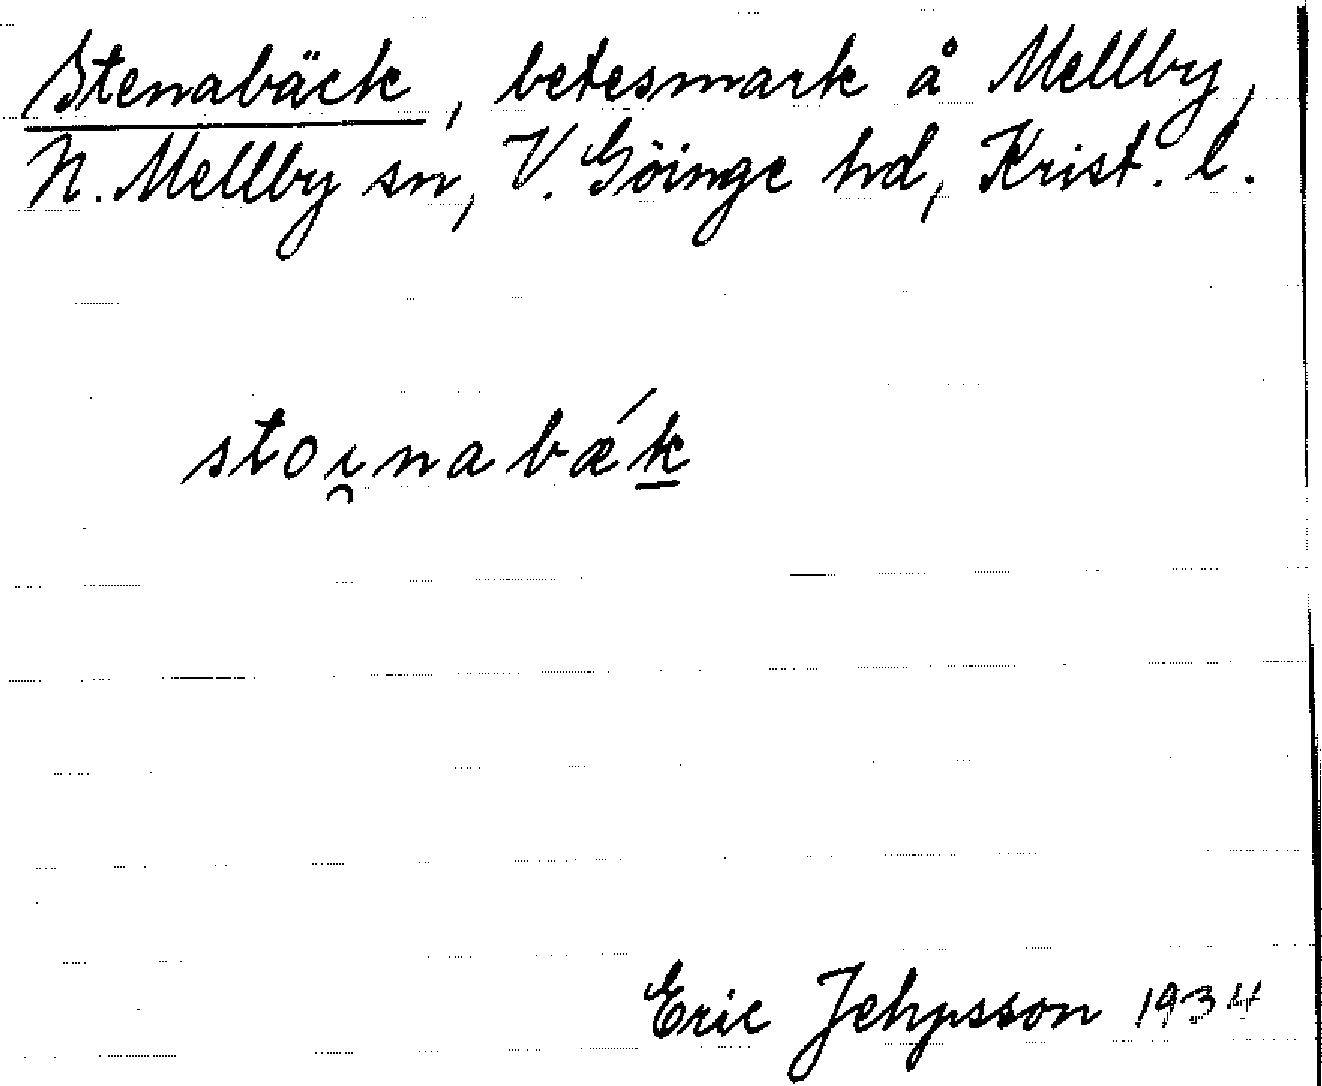 Stenabäck, betesmark å Mellby,
N. Mellby sn, V. Göinge hd, Krist. l.
stoı̯nabǽk̲
Eric Jehpsson 1934